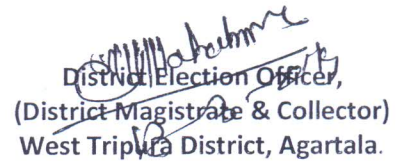 District Election Officer,
(District Magistrate & Collector)
West Tripura District, Agartala.